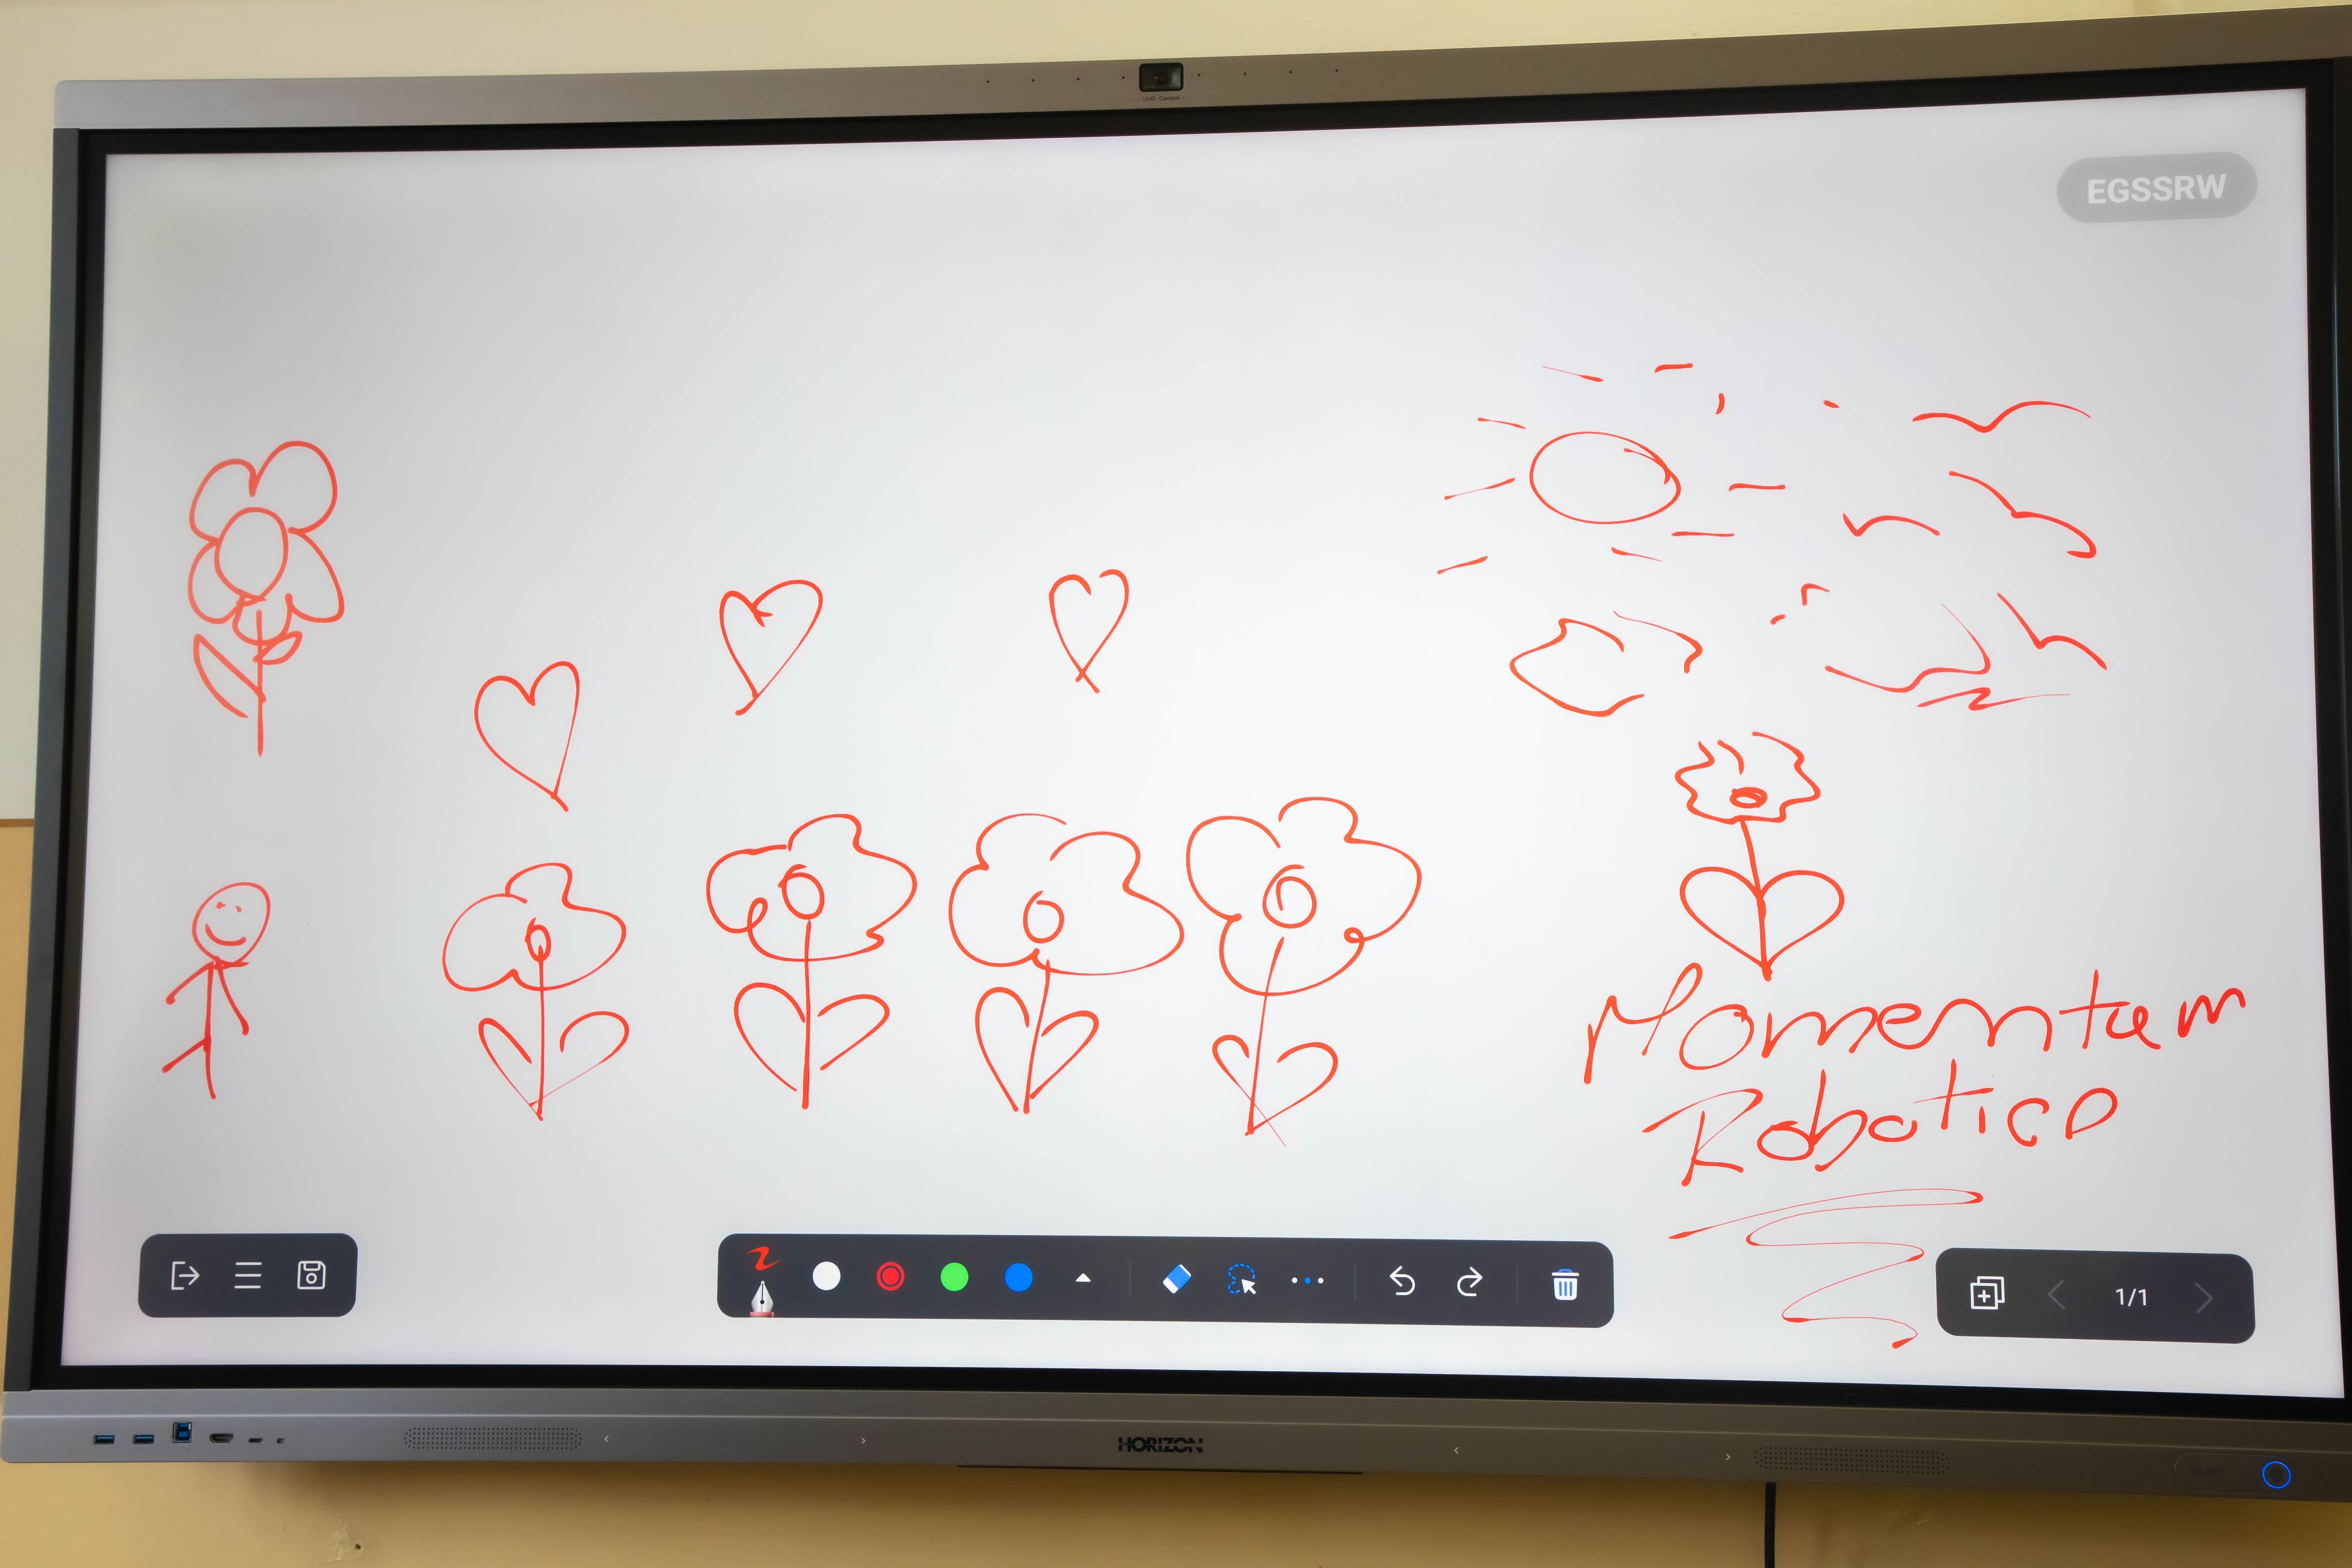 UHD Camera
EGSSRW
Momentum
Robotics
1/1
HORIZON